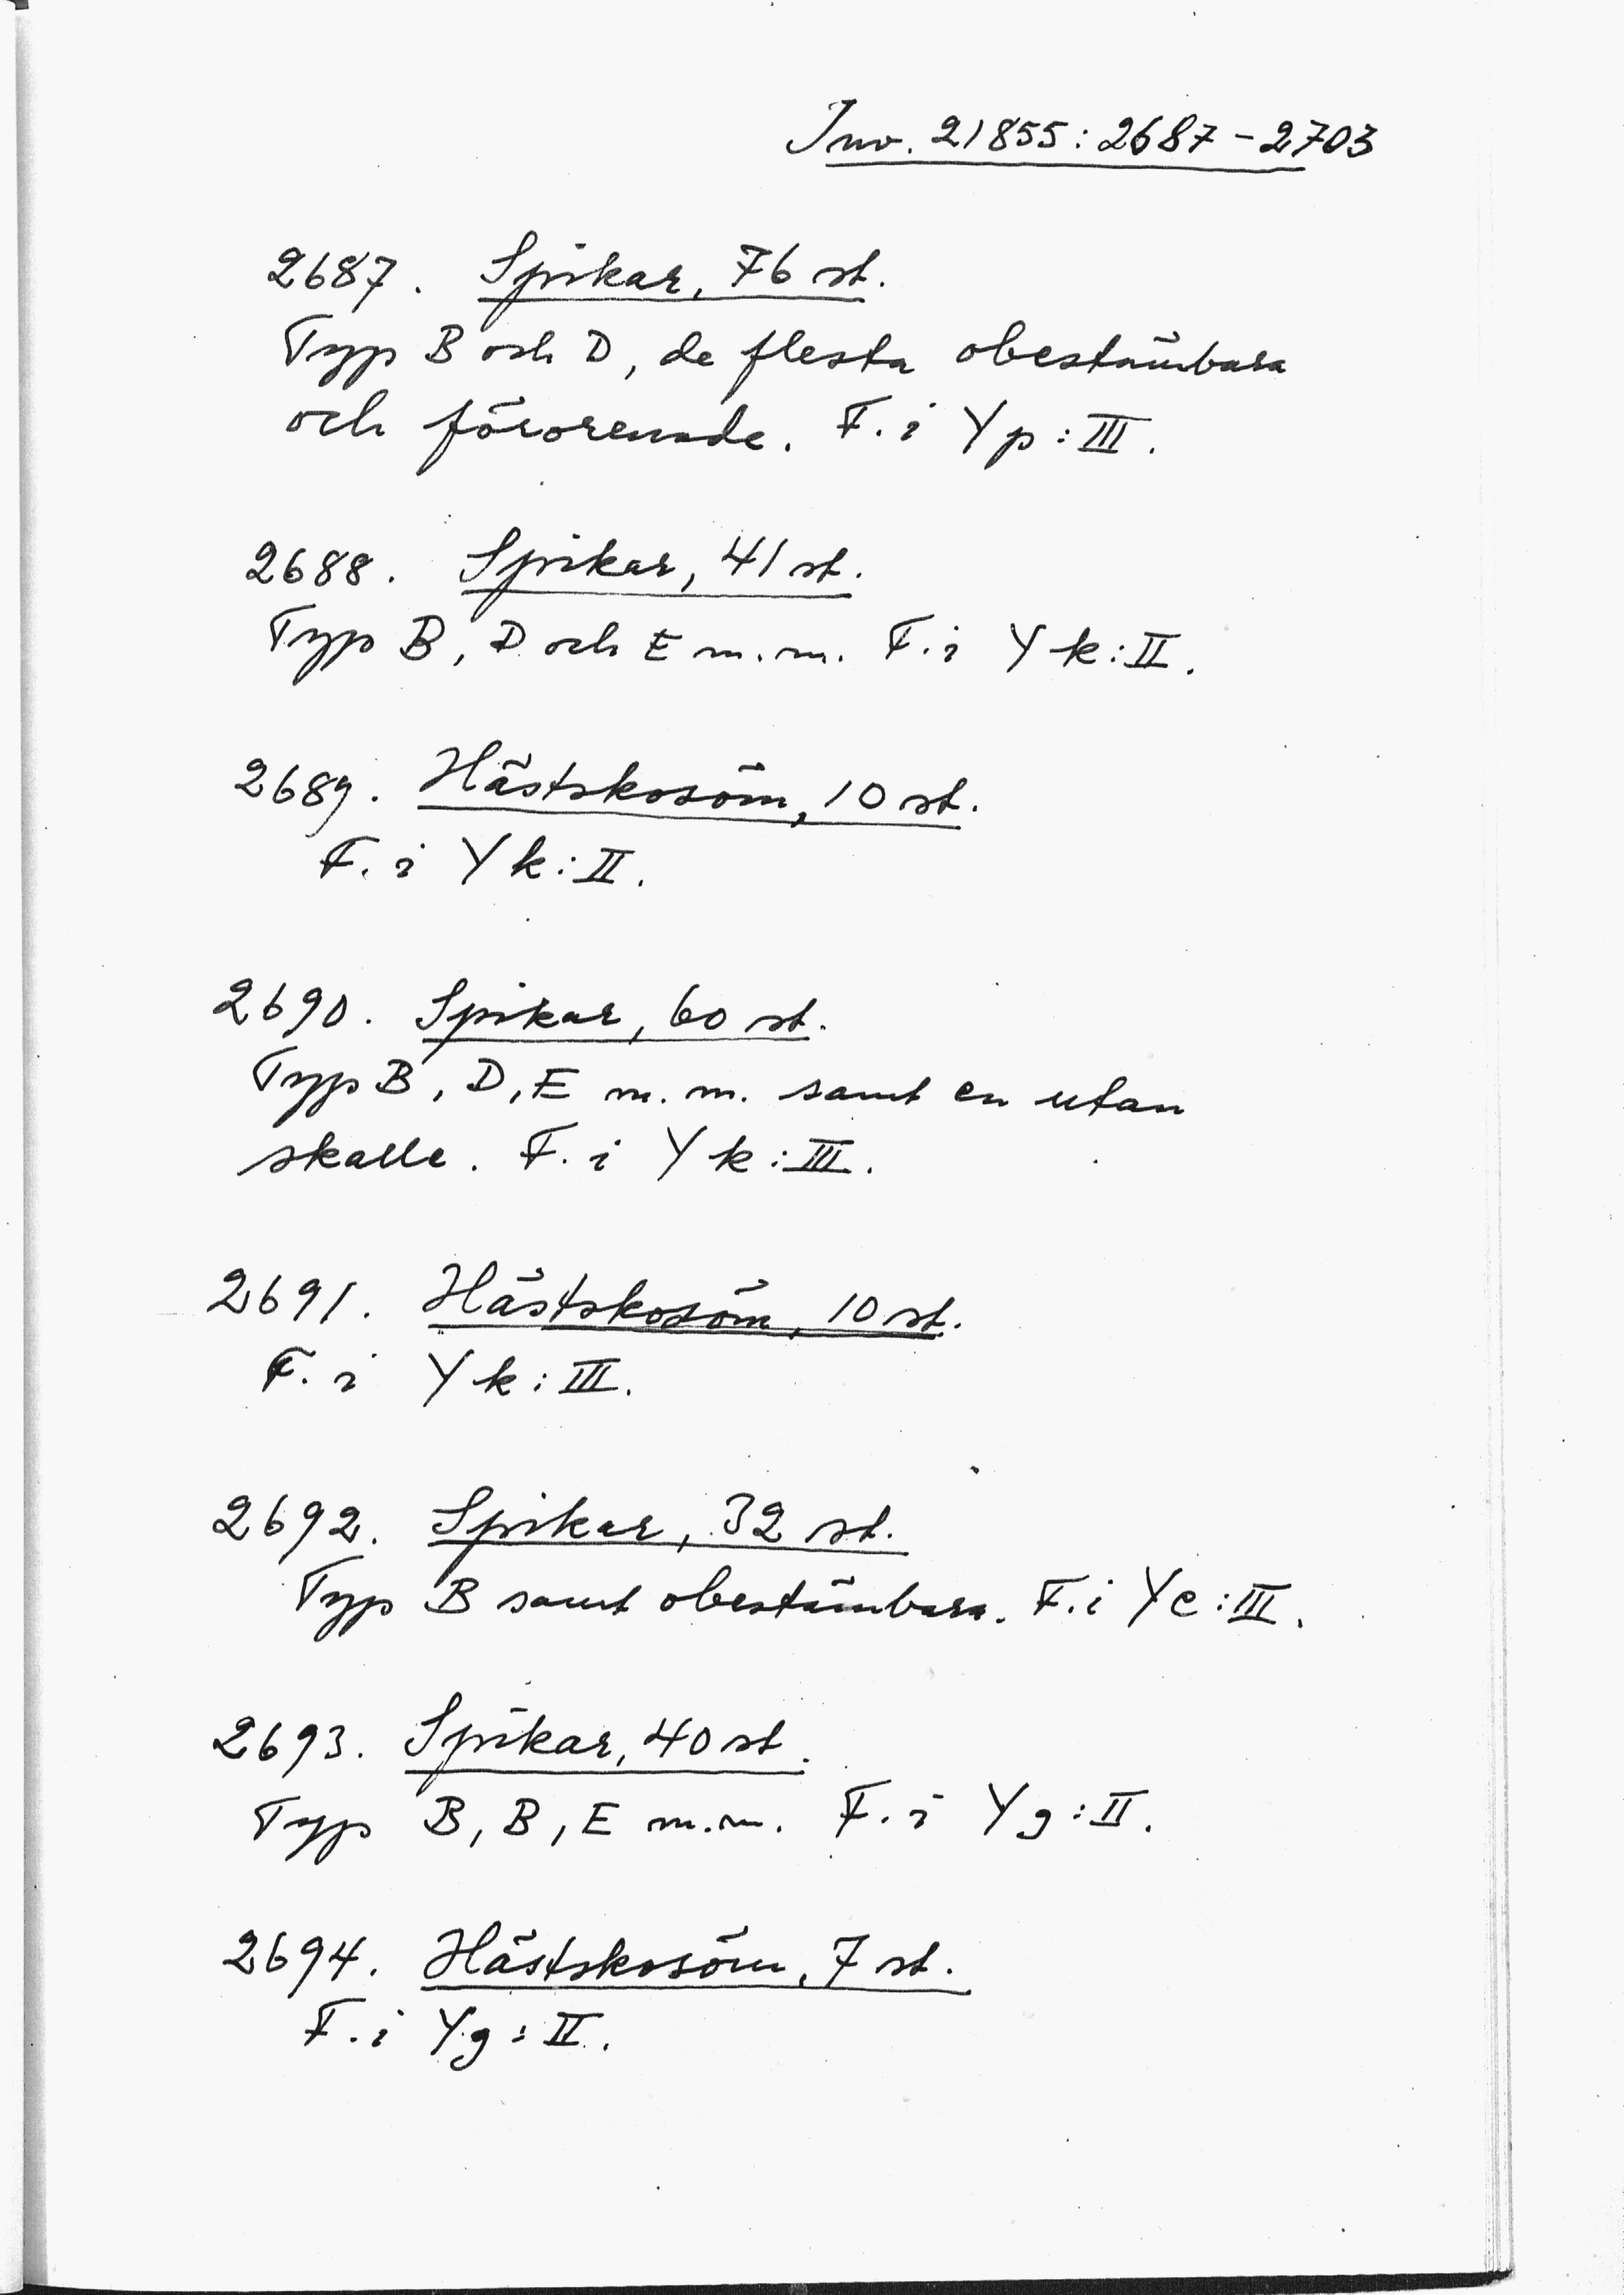 Inv. 21855:2687-2703
2687. Spikar, 76 st.
Typ B och D, de flesta obestämbara
och förorenade. F. i Yp:III.
2688. Spikar, 41 st.
Typ B, D och E m.m. F. i Yk:II.
2689. Hästskosöm, 10 st.
F. i Yk:II.
2690. Spikar, 60 st.
Typ B, D, E m.m. samt en utan
skalle. F. i Yk:III.
2691. Hästskosöm, 10 st.
F. i Yk:III.
2692. Spikar, 32 st.
Typ B samt obestämbara. F. i Ye:III.
2693. Spikar, 40 st.
Typ B, B, E m.m. F. i Yg:II.
2694. Hästskosöm, 7 st.
F. i Yg:II.